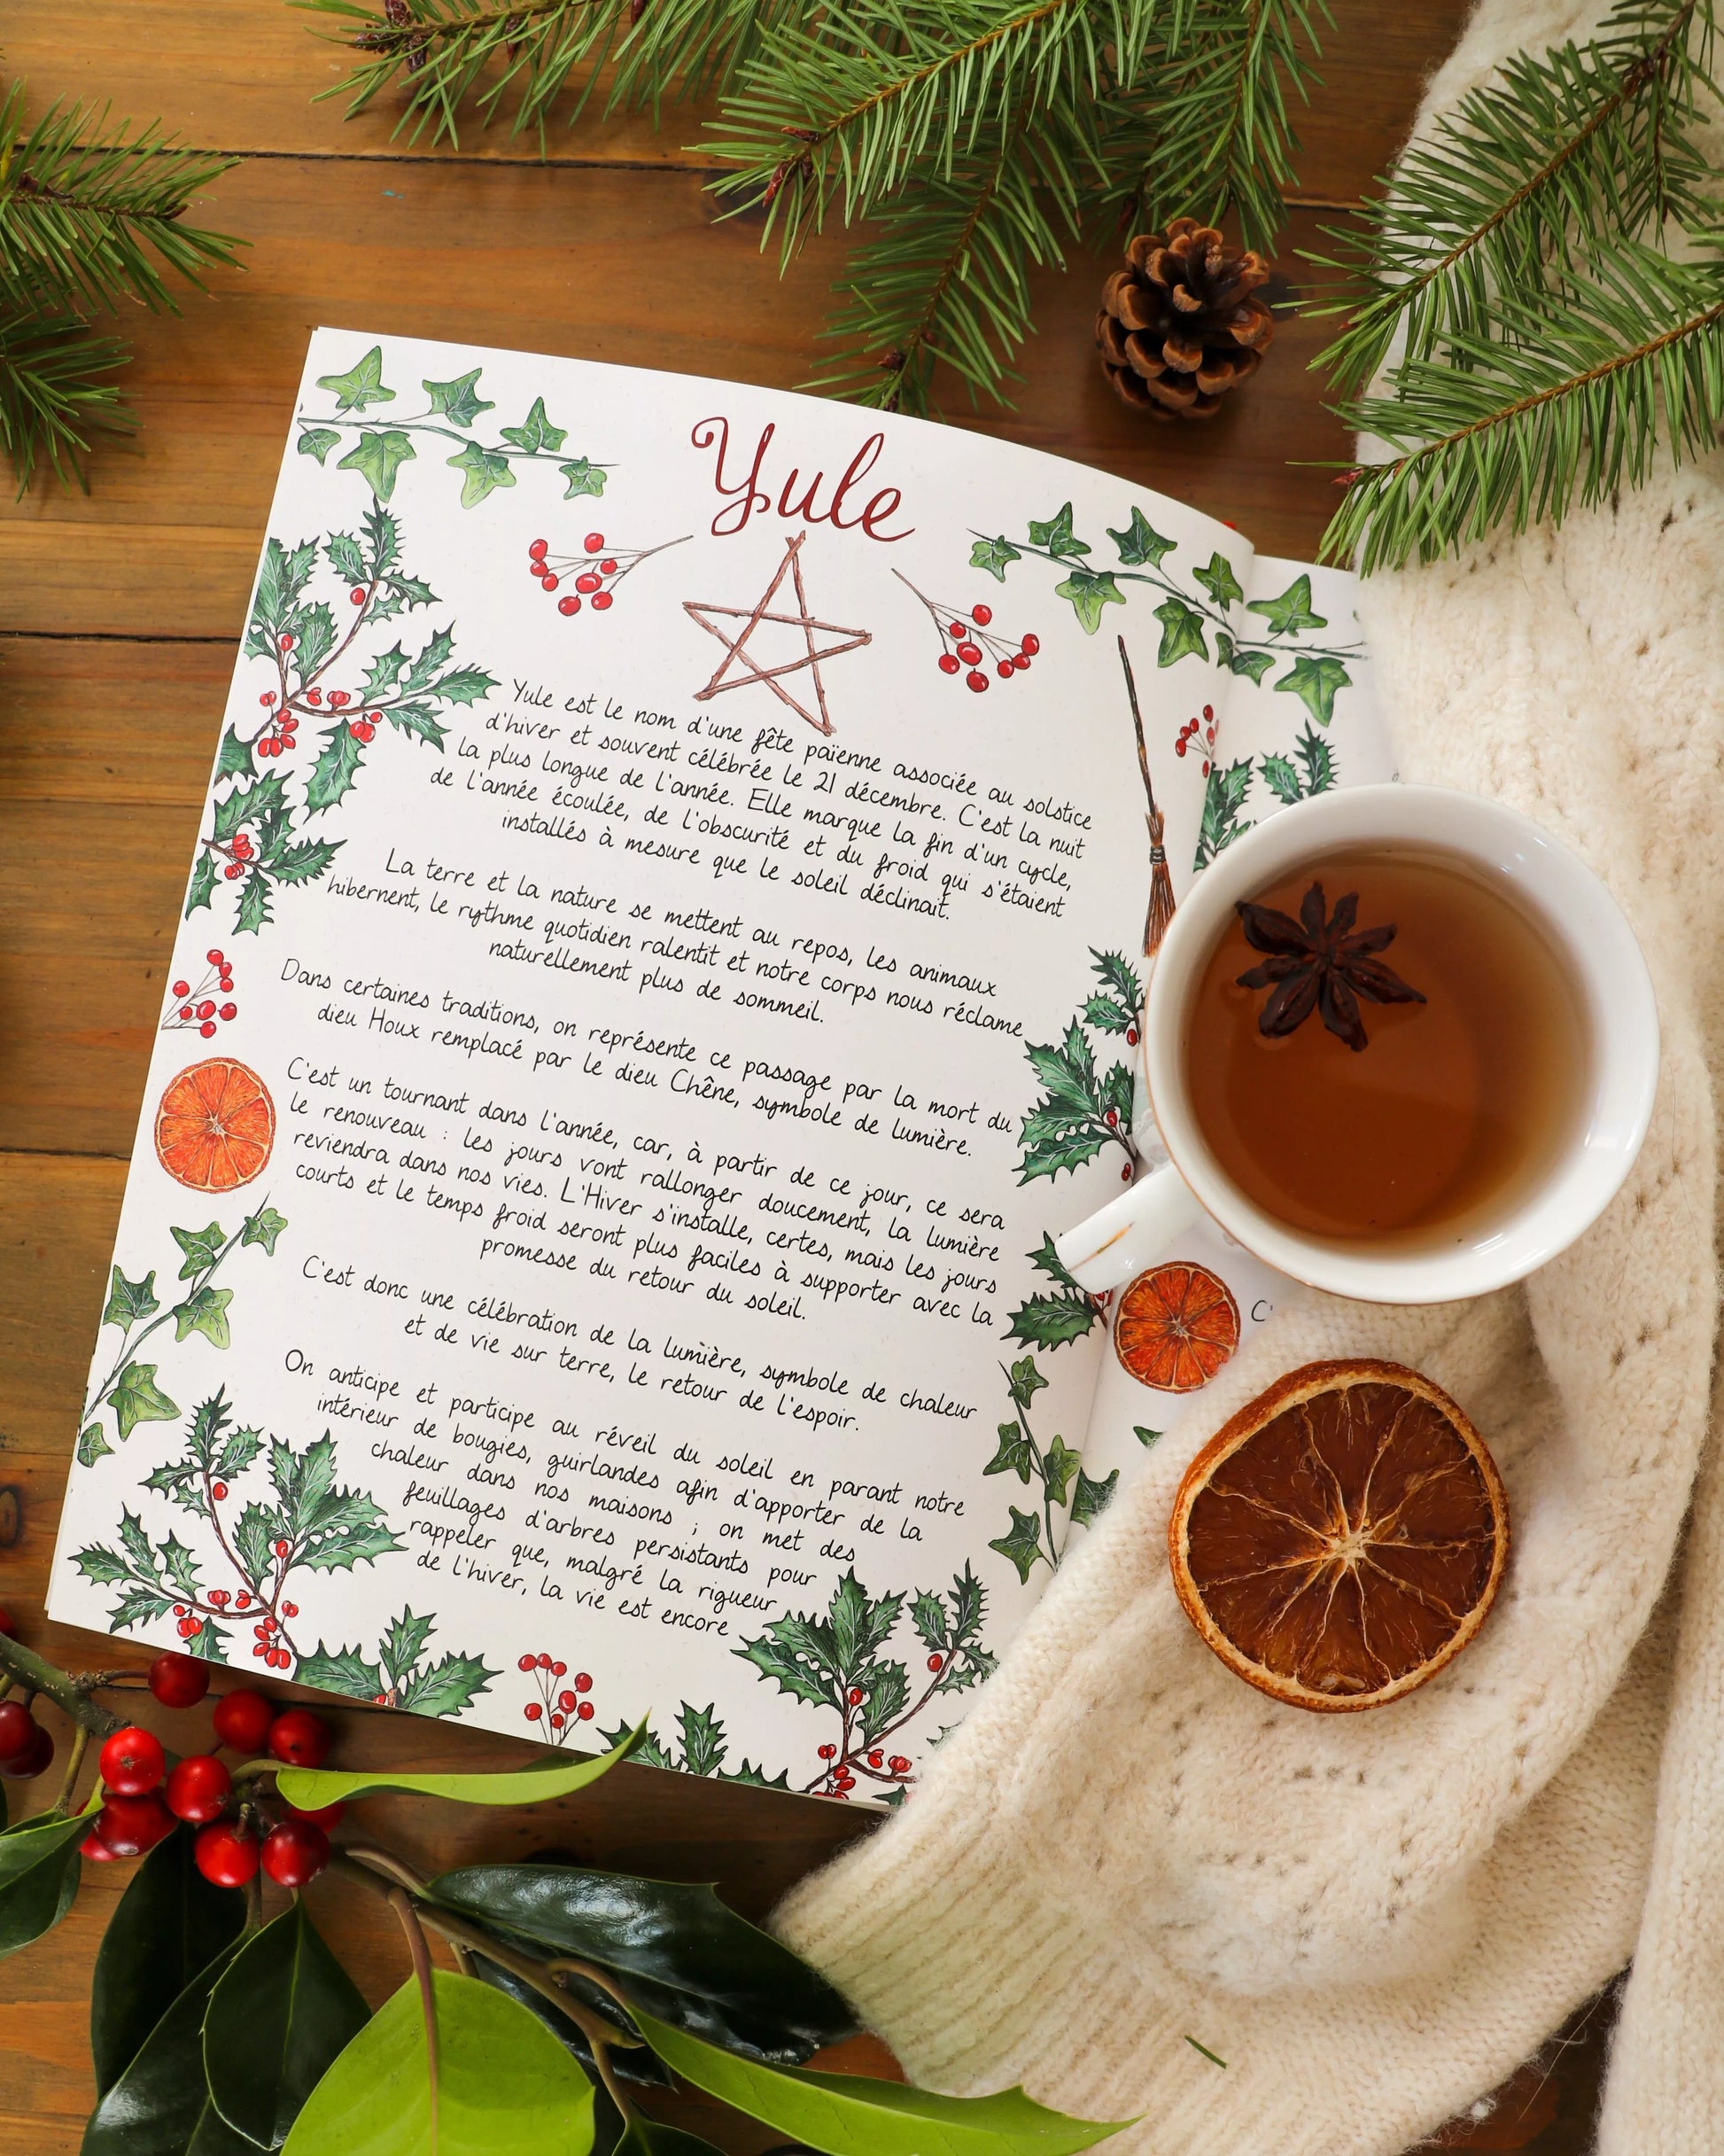 Yule
Yule est le nom d'une fête païenne associée au solstice
d'hiver et souvent célébrée le 21 décembre. C'est la nuit
la plus longue de l'année. Elle marque la fin d'un cycle,
de l'année écoulée, de l'obscurité et du froid qui s'étaient
installés à mesure que le soleil déclinait.
La terre et la nature se mettent au repos, les animaux
hibernent, le rythme quotidien ralentit et notre corps nous réclame
naturellement plus de sommeil.
Dans certaines traditions, on représente ce passage par la mort du
dieu Houx remplacé par le dieu Chêne, symbole de lumière.
C'est un tournant dans l'année, car, à partir de ce jour, ce sera
le renouveau : les jours vont rallonger doucement, la lumière
reviendra dans nos vies. L'Hiver s'installe, certes, mais les jours
courts et le temps froid seront plus faciles à supporter avec la
promesse du retour du soleil.
C'est donc une célébration de la lumière, symbole de chaleur
et de vie sur terre, le retour de l'espoir.
On anticipe et participe au réveil du soleil en parant notre
intérieur de bougies, guirlandes afin d'apporter de la
chaleur dans nos maisons ; on met des
feuillages d'arbres persistants pour
rappeler que, malgré la rigueur
de l'hiver, la vie est encore
C'